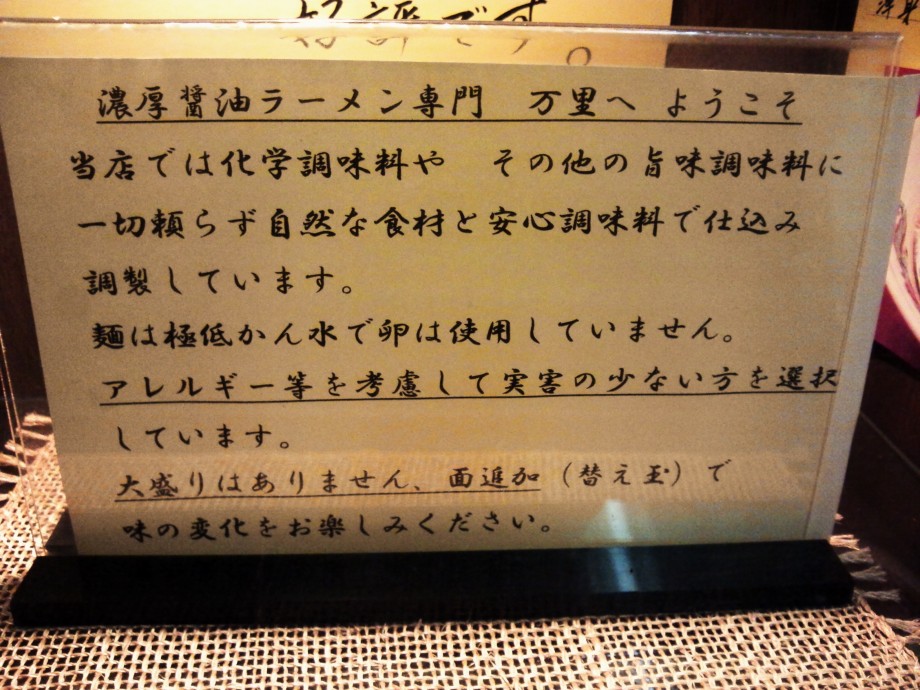 好評です。
濃厚醤油ラーメン専門 万里へ ようこそ
当店では化学調味料や その他の旨味調味料に
一切頼らず自然な食材と安心調味料で仕込み
調製しています。
麺は極低かん水で卵は使用していません。
アレルギー等を考慮して実害の少ない方を選択
しています。
大盛りはありません、面追加（替え玉）で
味の変化をお楽しみください。